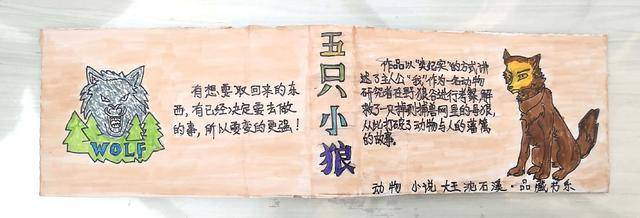 WOLF
有想要取回来的东
西,有已经决定要去做
的事,所以要变的更强!
五只小狼
作品以"类纪实"的方式讲
述了主人公"我"作为一名动物
研究者在野狼谷进行考察,解
救了一只掉到捕兽网里的母狼,
从此打破了动物与人的藩篱
的故事。
动物小说大王沈石溪·品藏书系